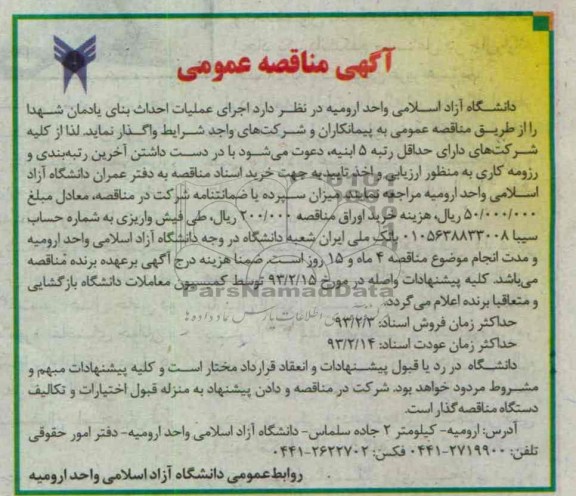 آگهی مناقصه عمومی
دانشگاه آزاد اسلامی واحد ارومیه در نظر دارد اجرای عملیات احداث بنای یادمان شهدا
را از طریق مناقصه عمومی به پیمانکاران و شرکت‌های واجد شرایط واگذار نماید. لذا از کلیه
شرکت‌های دارای حداقل رتبه ۵ ابنیه، دعوت می‌شود با در دست داشتن آخرین رتبه‌بندی و
رزومه کاری به منظور ارزیابی و اخذ تاییدیه جهت خرید اسناد مناقصه به دفتر عمران دانشگاه آزاد
اسلامی واحد ارومیه مراجعه نمایند. میزان سپرده یا ضمانتنامه شرکت در مناقصه، معادل مبلغ
۵۰/۰۰۰/۰۰۰ ریال، هزینه خرید اوراق مناقصه ۲۰۰/۰۰۰ ریال، طی فیش واریزی به شماره حساب
سیبا ۰۱۰۵۶۳۸۸۳۳۰۰۸ بانک ملی ایران شعبه دانشگاه در وجه دانشگاه آزاد اسلامی واحد ارومیه
و مدت انجام موضوع مناقصه ۴ ماه و ۱۵ روز است. ضمنا هزینه درج آگهی برعهده برنده مناقصه
می‌باشد. کلیه پیشنهادات واصله در مورخ ۹۳/۲/۱۵ توسط کمیسیون معاملات دانشگاه بازگشایی
و متعاقبا برنده اعلام می‌گردد.
ParsNamadData
حداکثر زمان فروش اسناد: ۹۳/۲/۳
حداکثر زمان عودت اسناد: ۹۳/۲/۱۴
دانشگاه در رد یا قبول پیشنهادات و انعقاد قرارداد مختار است و کلیه پیشنهادات مبهم و
مشروط مردود خواهد بود. شرکت در مناقصه و دادن پیشنهاد به منزله قبول اختیارات و تکالیف
دستگاه مناقصه‌گذار است.
آدرس: ارومیه- کیلومتر ۲ جاده سلماس- دانشگاه آزاد اسلامی واحد ارومیه- دفتر امور حقوقی
تلفن: ۲۷۱۹۹۰۰-۰۴۴۱ فکس: ۲۶۲۲۷۰۲-۰۴۴۱
روابط عمومی دانشگاه آزاد اسلامی واحد ارومیه